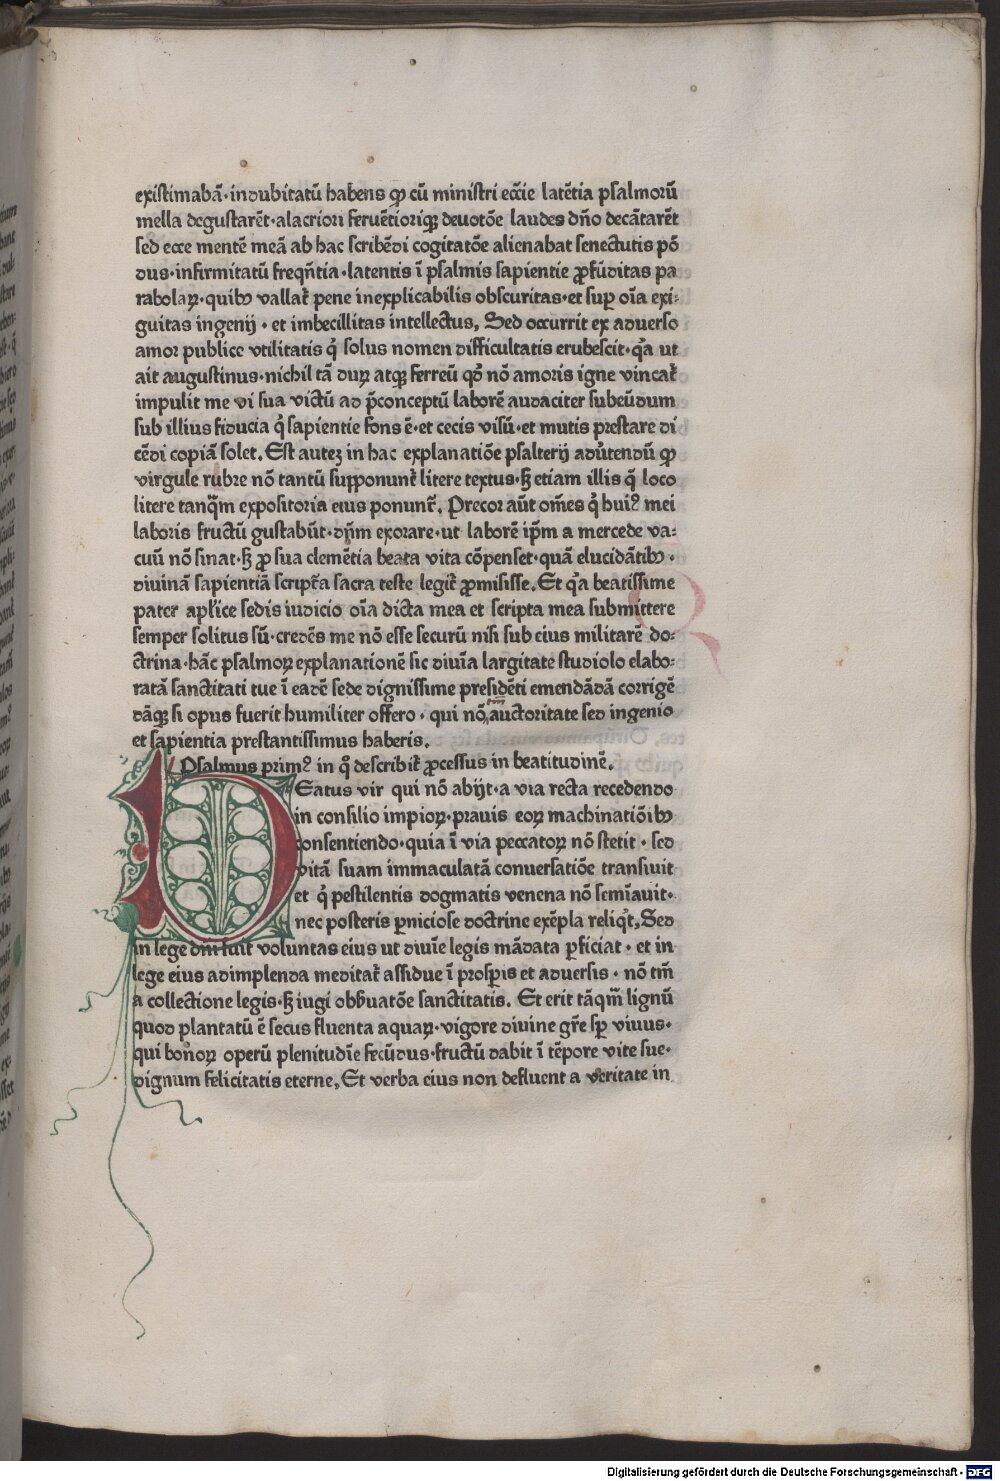 existimabā·indubitatū habens ꝙ cū ministri ecc̄ie latētia psalmorū
mella degustarēt·alacriori feruētioriqꝫ deuotōe laudes dn̄o decātarēt
sed ecce mentē meā ab hac scribēdi cogitatōe alienabat senectutis pō
dus·infirmitatū freqn̄tia·latentis ī psalmis sapientie ꝓfūditas pa
rabolaꝝ·quibꝰ vallat̄ pene inexplicabilis obscuritas·et suꝑ oīa exi⸗
guitas ingenij · et imbecillitas intellectus, Sed occurrit ex aduerso
amor publice vtilitatis q̇ solus nomen difficultatis erubescit·qͣa ut
ait augustinus·nichil tā duꝝ atqꝫ ferreū qd̄ nō amoris igne vincat̄
impulit me vi sua victū ad p̄conceptū laborē audaciter subeūdum
sub illius fiducia q̇ sapientie fons ē·et cecis visū·et mutis prestare di
cēdi copiā solet. Est auteꝫ in hac explanatiōe psalterij aduītendū ꝙ
virgule rubre nō tantū supponunt̄ litere textus·sꝫ etiam illis q̄ loco
litere tanqͣm expositoria eius ponunt̄. Precor aūt om̄es q̇ huiꝰ mei
laboris fructū gustabūt·dn̄m exorare·ut laborē ip̄m a mercede va⸗
cuū nō sinat·sꝫ ꝓ sua clemētia beata vita cōpenset·quā elucidātibꝰ·
diuinā sapientiā script̄a sacra teste legit̄ ꝓmisisse. Et qͣa beatissime
pater apl̄ice sedis iudicio oīa dicta mea et scripta mea submittere
semper solitus sū·credēs me nō esse securū nisi sub eius militarē do⸗
ctrina·hāc psalmoꝝ explanationē sic diuīa largitate studiolo elabo⸗
ratā sanctitati tue ī eadē sede dignissime presidēti emendādā corrigē
dāqꝫ si opus fuerit humiliter offero · qui nō auctoritate sed ingenio
et sapientia prestantissimus haberis.
Psalmus primꝰ in q̊ describit̄ ꝓcessus in beatitudinē.
Beatus vir qui nō abijt·a via recta recedendo
in consilio impioꝝ·prauis eoꝝ machinatiōibꝰ
consentiendo·quia ī via peccatoꝝ nō stetit · sed
vitā suam immaculatā conuersatiōe transiuit
et q̇ pestilentis dogmatis venena nō semīauit·
nec posteris ꝑniciose doctrine exēpla reliq̇t, Sed
in lege dn̄i fuit voluntas eius ut diuīe legis mādata ꝑficiat · et in
lege eius adimplenda meditat̄ assidue ī prosꝑis et aduersis · nō tm̄
a collectione legis·sꝫ iugi obẜuatōe sanctitatis. Et erit tāqͣm lignū
quod plantatū ē secus fluenta aquaꝝ·vigore diuine gr̄e sꝑ viuus·
qui bonoꝝ operū plenitudīe fecūdus·fructū dabit ī tēpore vite sue·
dignum felicitatis eterne, Et verba eius non defluent a veritate in
Digitalisierung gefördert durch die Deutsche Forschungsgemeinschaft - DFG